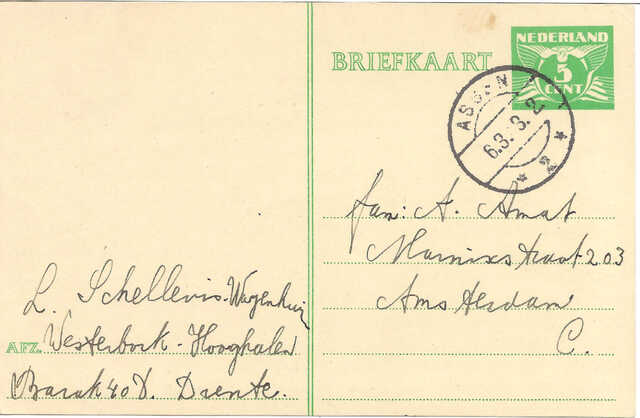 BRIEFKAART
NEDERLAND
5
CENT
ASSEN
6.3.3.2
* 2 *
fam: A. Amat
Marnixstraat 203
Amsterdam
C.
L. Schellevis-Wagenhuizen
AFZ. Westerbork - Hooghalen
Barak 40 D. Drente.